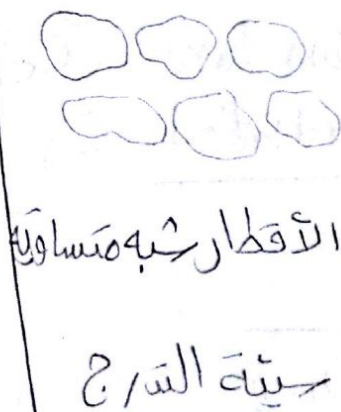 الأقطار شبه متساوية
سيئة التدرج